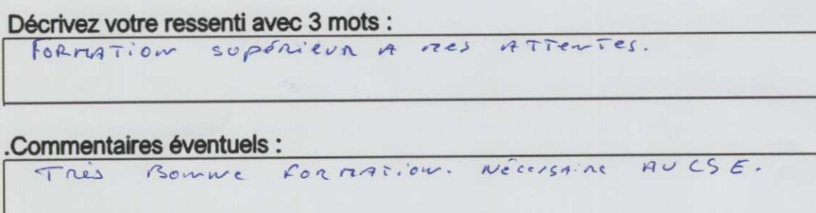 Décrivez votre ressenti avec 3 mots :
FORMATION SUPÉRIEUR A MES ATTENTES.
.Commentaires éventuels :
TRÈS BONNE FORMATION. NÉCESSAIRE AU CSE.